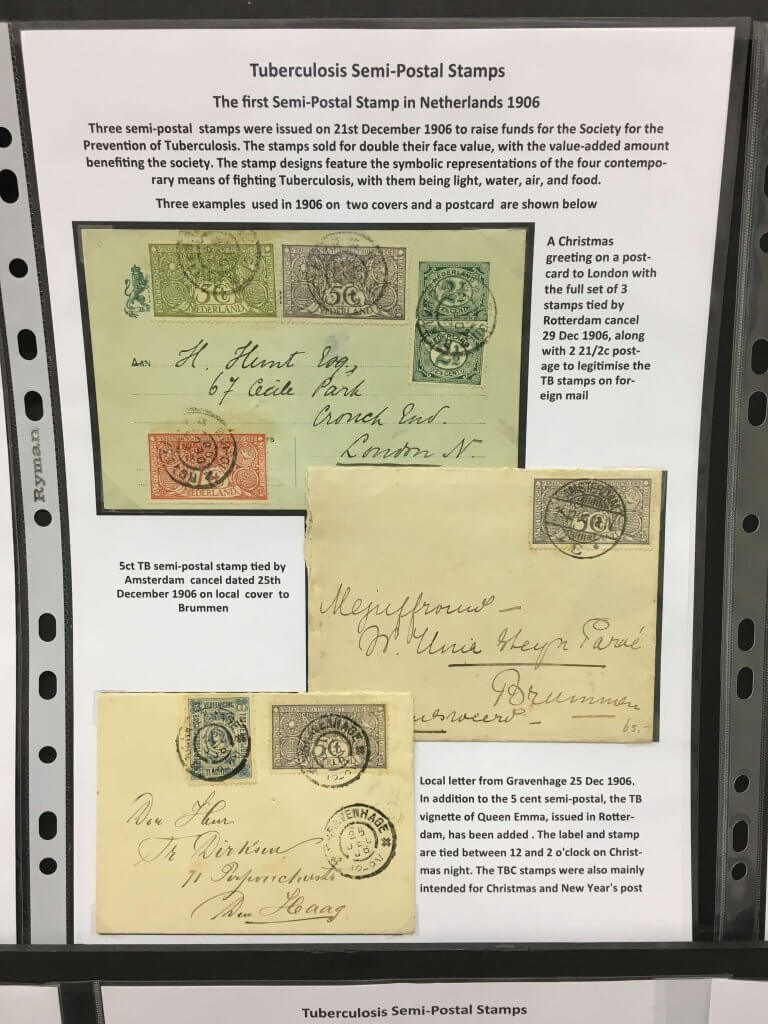 Tuberculosis Semi-Postal Stamps
The first Semi-Postal Stamp in Netherlands 1906
Three semi-postal stamps were issued on 21st December 1906 to raise funds for the Society for the
Prevention of Tuberculosis. The stamps sold for double their face value, with the value-added amount
benefiting the society. The stamp designs feature the symbolic representations of the four contempo-
rary means of fighting Tuberculosis, with them being light, water, air, and food.
Three examples used in 1906 on two covers and a postcard are shown below
A Christmas
greeting on a post-
card to London with
the full set of 3
stamps tied by
Rotterdam cancel
29 Dec 1906, along
with 2 21/2c post-
age to legitimise the
TB stamps on for-
eign mail
3Ct
NEDERLAND
5Ct
NEDERLAND
NEDERLAND
2½
CENT
2½
CENT
AAN
H. Hunt Esq,
67 Cecile Park
Crouch End.
London N.
NEDERLAND
Ryman
5ct TB semi-postal stamp tied by
Amsterdam cancel dated 25th
December 1906 on local cover to
Brummen
AMSTERDAM
5Ct
Mejuffrouw
Brummen
65.-
5Ct
GRAVENHAGE
Den Heer
Dirksen
71
Den Haag
GRAVENHAGE
25
DEC
06
Local letter from Gravenhage 25 Dec 1906.
In addition to the 5 cent semi-postal, the TB
vignette of Queen Emma, issued in Rotter-
dam, has been added . The label and stamp
are tied between 12 and 2 o'clock on Christ-
mas night. The TBC stamps were also mainly
intended for Christmas and New Year's post
Tuberculosis Semi-Postal Stamps